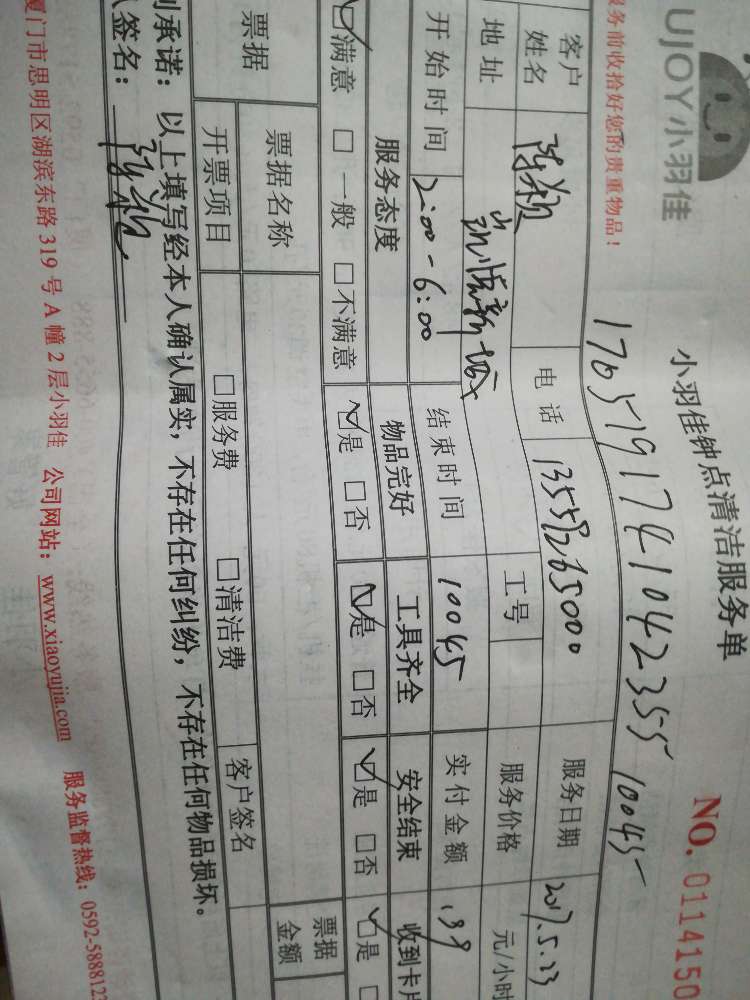 UJOY小羽佳
小羽佳钟点清洁服务单
NO. 0114150
务前收拾好您的贵重物品！
1705191741042355 10045
客户姓名 陈颖 电话 13559265000 服务日期 2017.5.23
地址 工号 服务价格 元/小时
开始时间 2:00-6:00 结束时间 10045 实付金额 139
服务态度 物品完好 工具齐全 安全结束 收到卡片
☑满意 □一般 □不满意 ☑是 □否 ☑是 □否 ☑是 □否 ☑是
票据 票据名称 票据金额
开票项目 □服务费 □清洁费 客户签名
承诺：以上填写经本人确认属实，不存在任何纠纷，不存在任何物品损坏。
签名：陈颖
厦门市思明区湖滨东路 319 号 A 幢 2 层小羽佳 公司网站：www.xiaoyujia.com 服务监督热线：0592-5888123